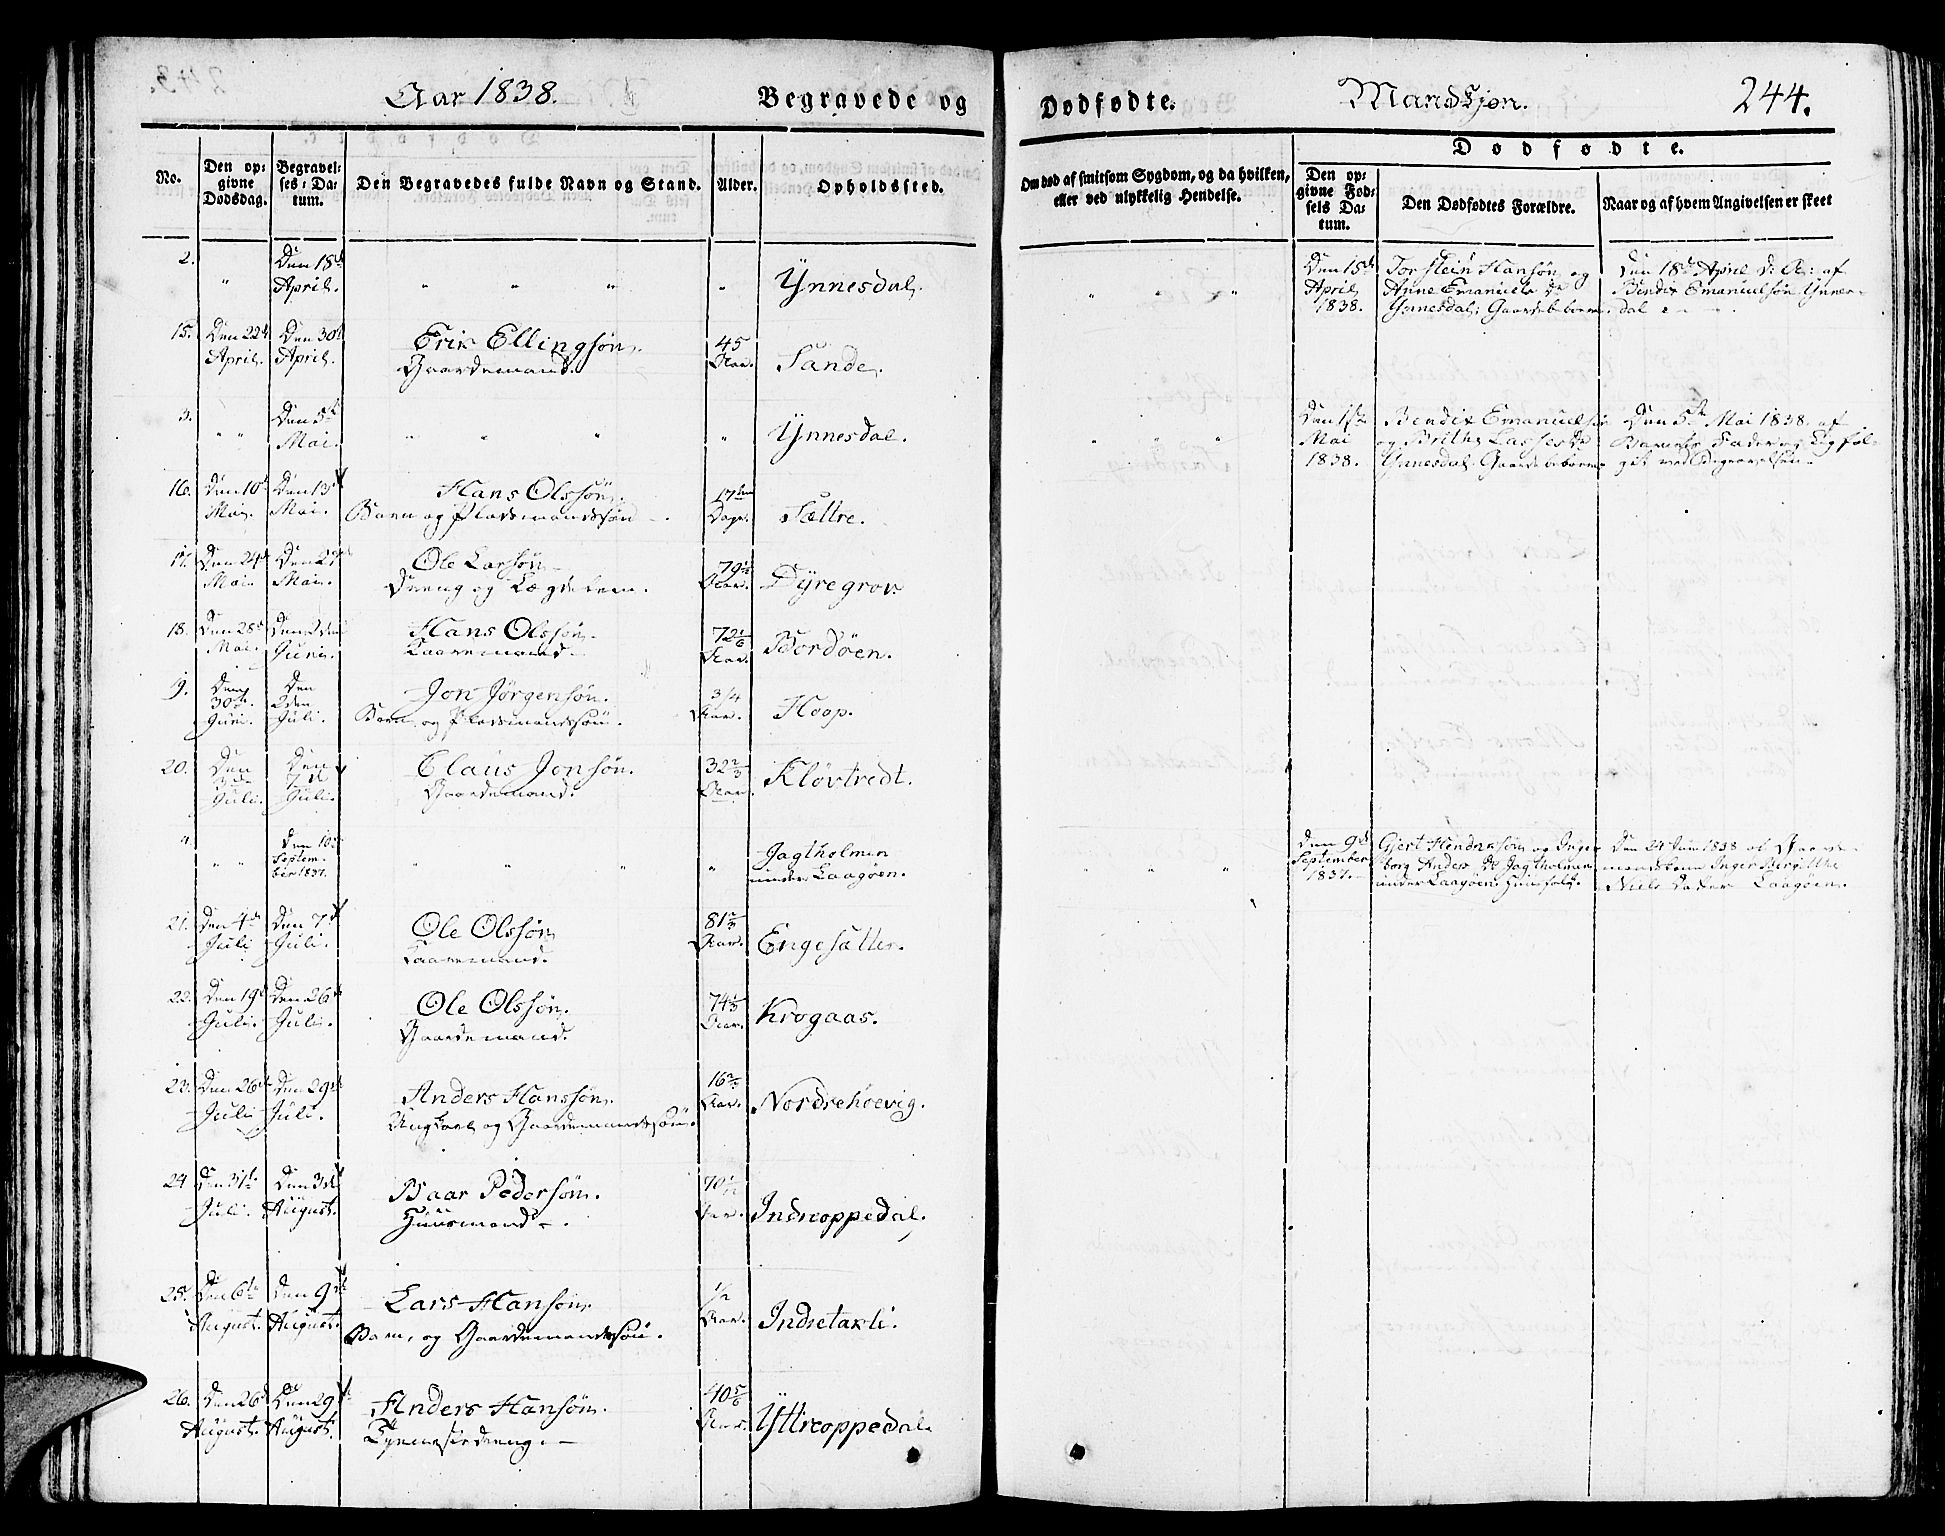 Aar 1838. Begravede og Dødfødte. Mandkjøn. 244.
No.
Den op-
givne
Dødsdag.
Begravel-
ses-Da-
tum.
Den Begravedes fulde Navn og Stand.
Alder.
Opholdssted.
Om død af smitsom Sygdom, og da hvilken,
eller ved ulykkelig Hendelse.
Dødfødte.
Den op-
givne Fød-
sels Da-
tum.
Den Dødfødtes Forældre.
Naar og af hvem Angivelsen er skeet
2. " Den 18de April. " " " " Ynnesdal. " " "
Den 15de April 1838.
Torstein Hansøn og
Anne Emanuels Dr
Ynnesdal; Gaardbeboere.
Den 18de April d: A: af
Bendix Emanuelsøn Ynnes-
dal
15. Den 22de April. Den 30te April. Erik Ellingsøn.
Gaardemand.
45 Aar. Sande.
3. " " Den 5te Mai. " " " " Ynnesdal. " " "
Den 1ste Mai 1838.
Bendix Emanuelsøn
og Brithe Lasses Dr
Ynnesdal. Gaardbeboere
Den 5te Mai 1838. af
Barnets Fader og Ligføl-
get ved Begravelsen.
16. Den 10de Mai. Den 13de Mai. Hans Olssøn.
Barn og Pladsmandssøn
17 ten Dage. Sættre.
17. Den 24de Mai. Den 27de Mai. Ole Larsøn
Dreng og Lægdslem.
79½ Aar. Dyregrov.
18. Den 28de Mai. Den 2den Juni. Hans Olssøn.
Kaaremand.
72 1/6 Aar. Bordøen.
19. Den 30te Juni. Den 2den Juli. Jon Jørgensøn.
Barn og Pladsmandssøn.
3/4 Aar. Hoop.
20. Den 3de Juli. Den 7de Juli. Claus Jonsøn.
Gaardemand.
32 2/3 Aar. Kløvtredt.
" " " Den 10de Septem-
ber 1837. " " " "
Jagtholmen
under Laagøen. " " "
Den 9de
September
1837.
Gjert Hendriksøn og Inge-
borg Anders Dr Jagtholmen
under Laagøen. Huusfolk.
Den 24 Juni 1838 af Gaarde-
mandskone Inger Bergitthe
Niels Datter Laagøen.
21. Den 4de Juli. Den 7de Juli. Ole Olssøn
Kaaremand.
81 2/3 Aar. Engesætter.
22. Den 19de Juli. Den 26de Juli. Ole Olssøn.
Gaardemand.
74 1/3 Aar. Krogaas.
23. Den 26de Juli. Den 29de Juli. Anders Hanssøn.
Ungkarl og Gaardemandssøn.
16 Aar. Nordrehoevig.
24 Den 31te Juli. Den 3de August. Baar Pedersøn.
Huusmand.
70 1/12 Aar. Indreoppedal.
25. Den 6te August. Den 9de August. Lars Hansøn.
Barn, og Gaardemandssøn.
1/2 Aar. Indretakli.
26. Den 26de August. Den 29de August. Anders Hansøn.
Tjenestedreng.
40 5/6 Aar. Yttreoppedal.